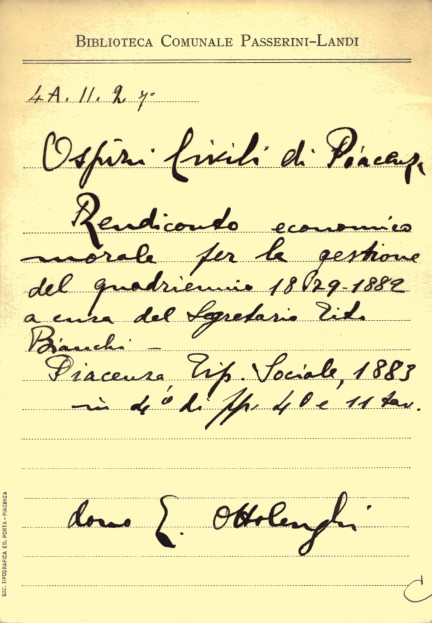 BIBLIOTECA COMUNALE PASSERINI-LANDI
4 A. II. 27
Ospizi Civili di Piacenza
Rendiconto economico
morale per la gestione
del quadriennio 1879-1882
a cura del Segretario Tito
Bianchi -
Piacenza Tip. Sociale, 1883
in 4° di pp. 40 e 11 tav.
dono E. Ottolenghi
SOC. TIPOGRAFICA ED. PORTA - PIACENZA